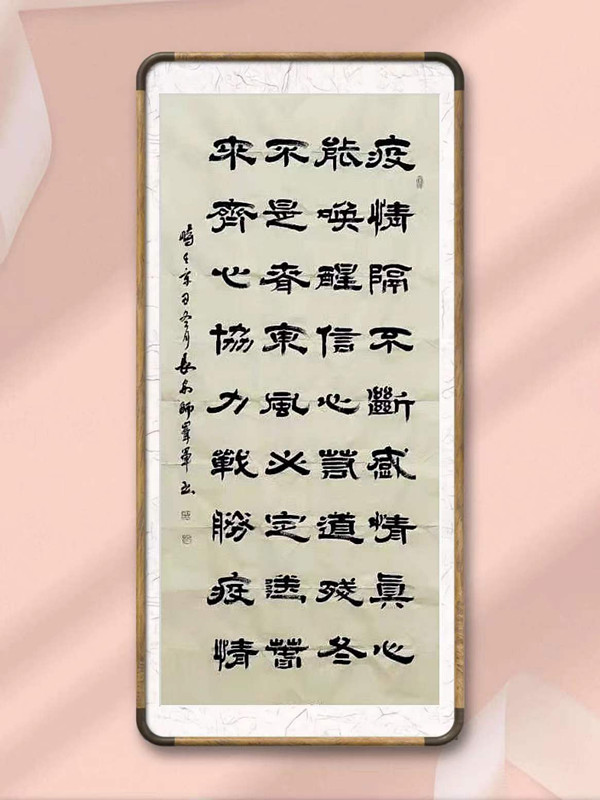 疫情隔不斷感情眞心
能喚醒信心道殘冬
不是春東風必定送舊
來齊心協力戰勝疫情
時在辛丑冬月長安師軍书